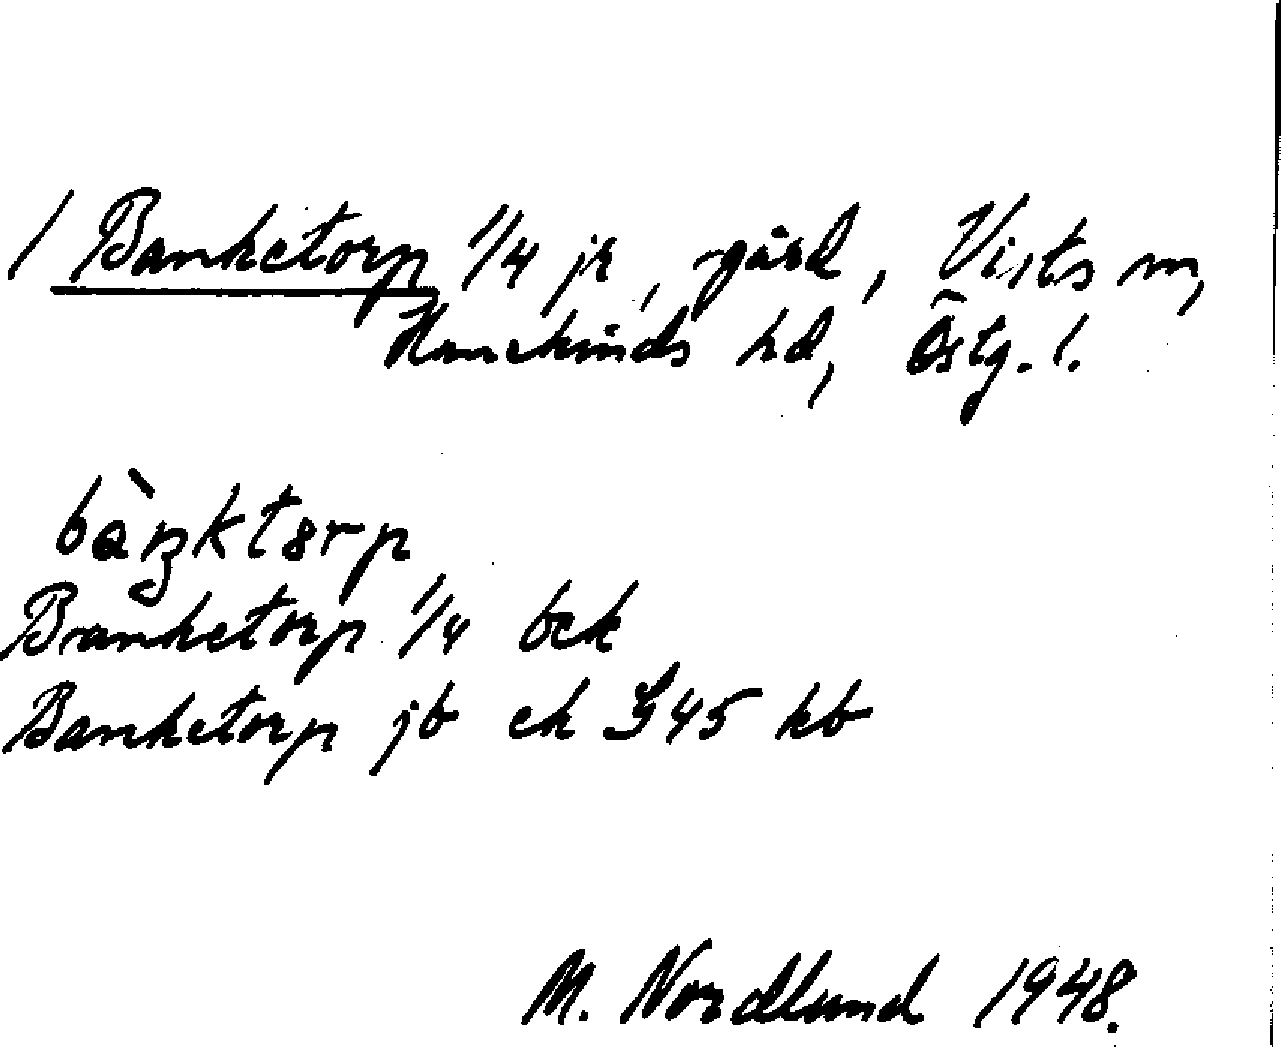 / Banketorp 1/4 jr, gård, Vists sn,
Hanekinds hd, Östg. l.
bàŋktorp
Banketorp 1/4 bek
Banketorp jb ek G 45 kb
M. Nordlund 1948.